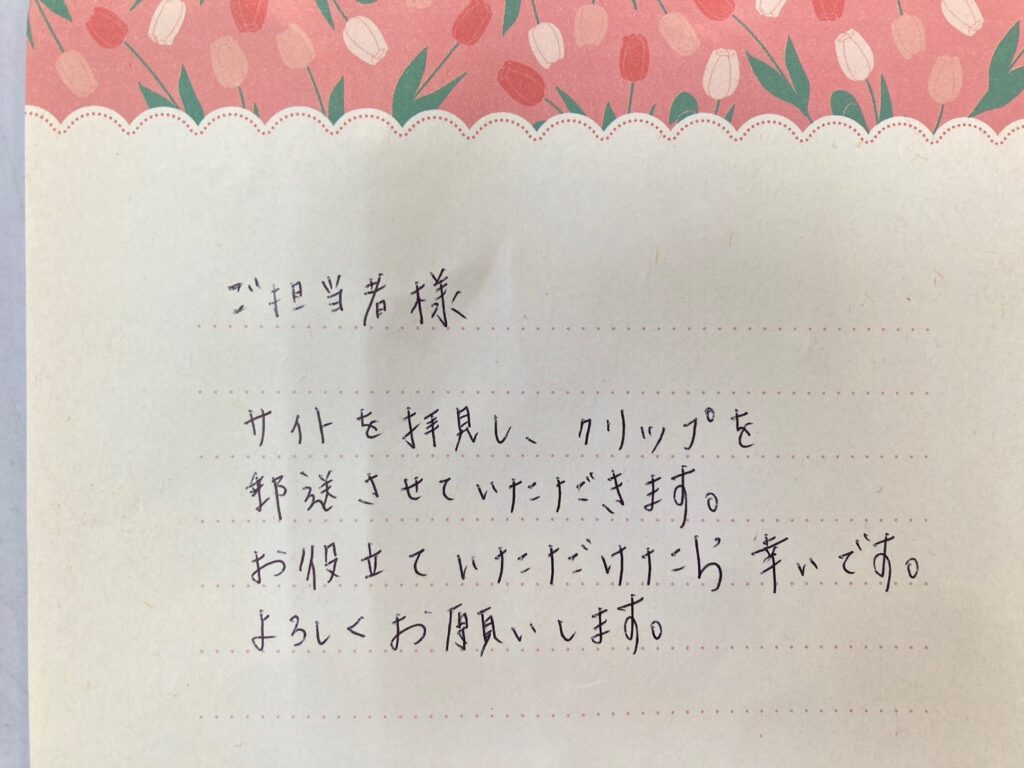 ご担当者様
サイトを拝見し、クリップを
郵送させていただきます。
お役立ていただけたら幸いです。
よろしくお願いします。